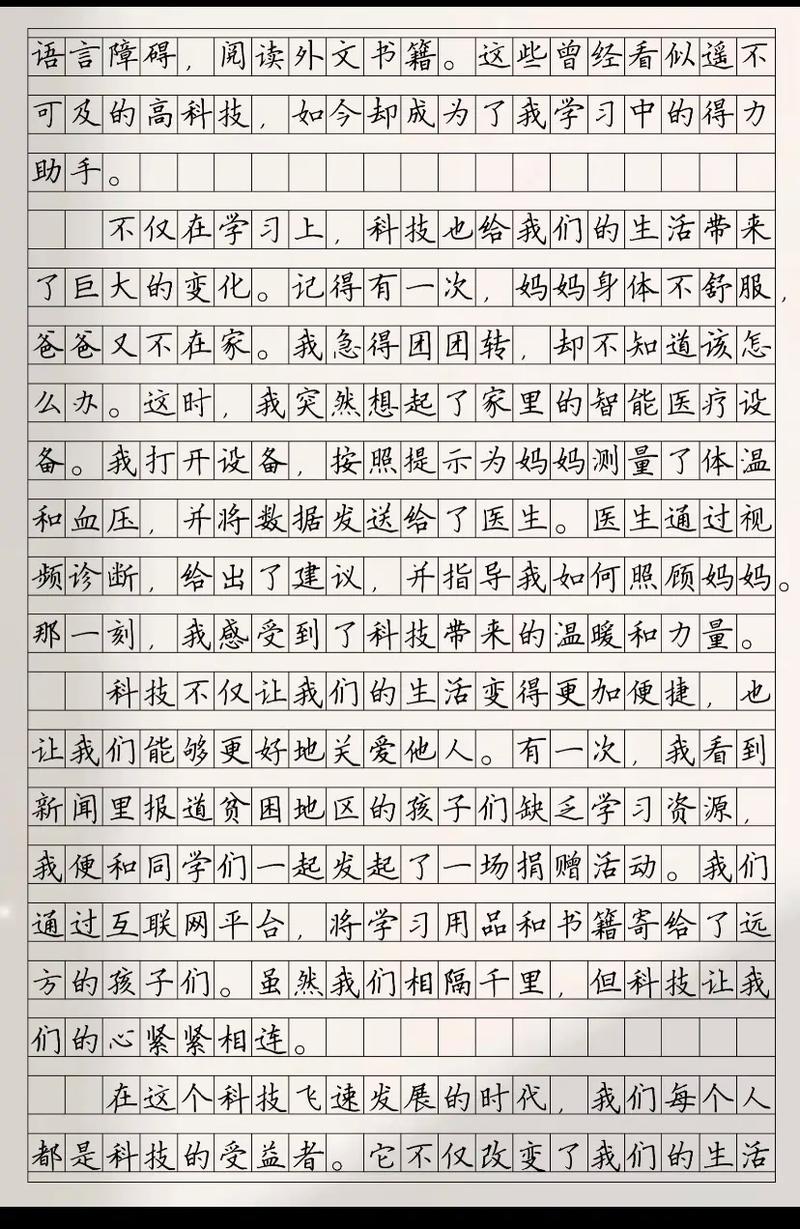 语言障碍，阅读外文书籍。这些曾经看似遥不
可及的高科技，如今却成为了我学习中的得力
助手。
不仅在学习上，科技也给我们的生活带来
了巨大的变化。记得有一次，妈妈身体不舒服，
爸爸又不在家。我急得团团转，却不知道该怎
么办。这时，我突然想起了家里的智能医疗设
备。我打开设备，按照提示为妈妈测量了体温
和血压，并将数据发送给了医生。医生通过视
频诊断，给出了建议，并指导我如何照顾妈妈。
那一刻，我感受到了科技带来的温暖和力量。
科技不仅让我们的生活变得更加便捷，也
让我们能够更好地关爱他人。有一次，我看到
新闻里报道贫困地区的孩子们缺乏学习资源，
我便和同学们一起发起了一场捐赠活动。我们
通过互联网平台，将学习用品和书籍寄给了远
方的孩子们。虽然我们相隔千里，但科技让我
们的心紧紧相连。
在这个科技飞速发展的时代，我们每个人
都是科技的受益者。它不仅改变了我们的生活